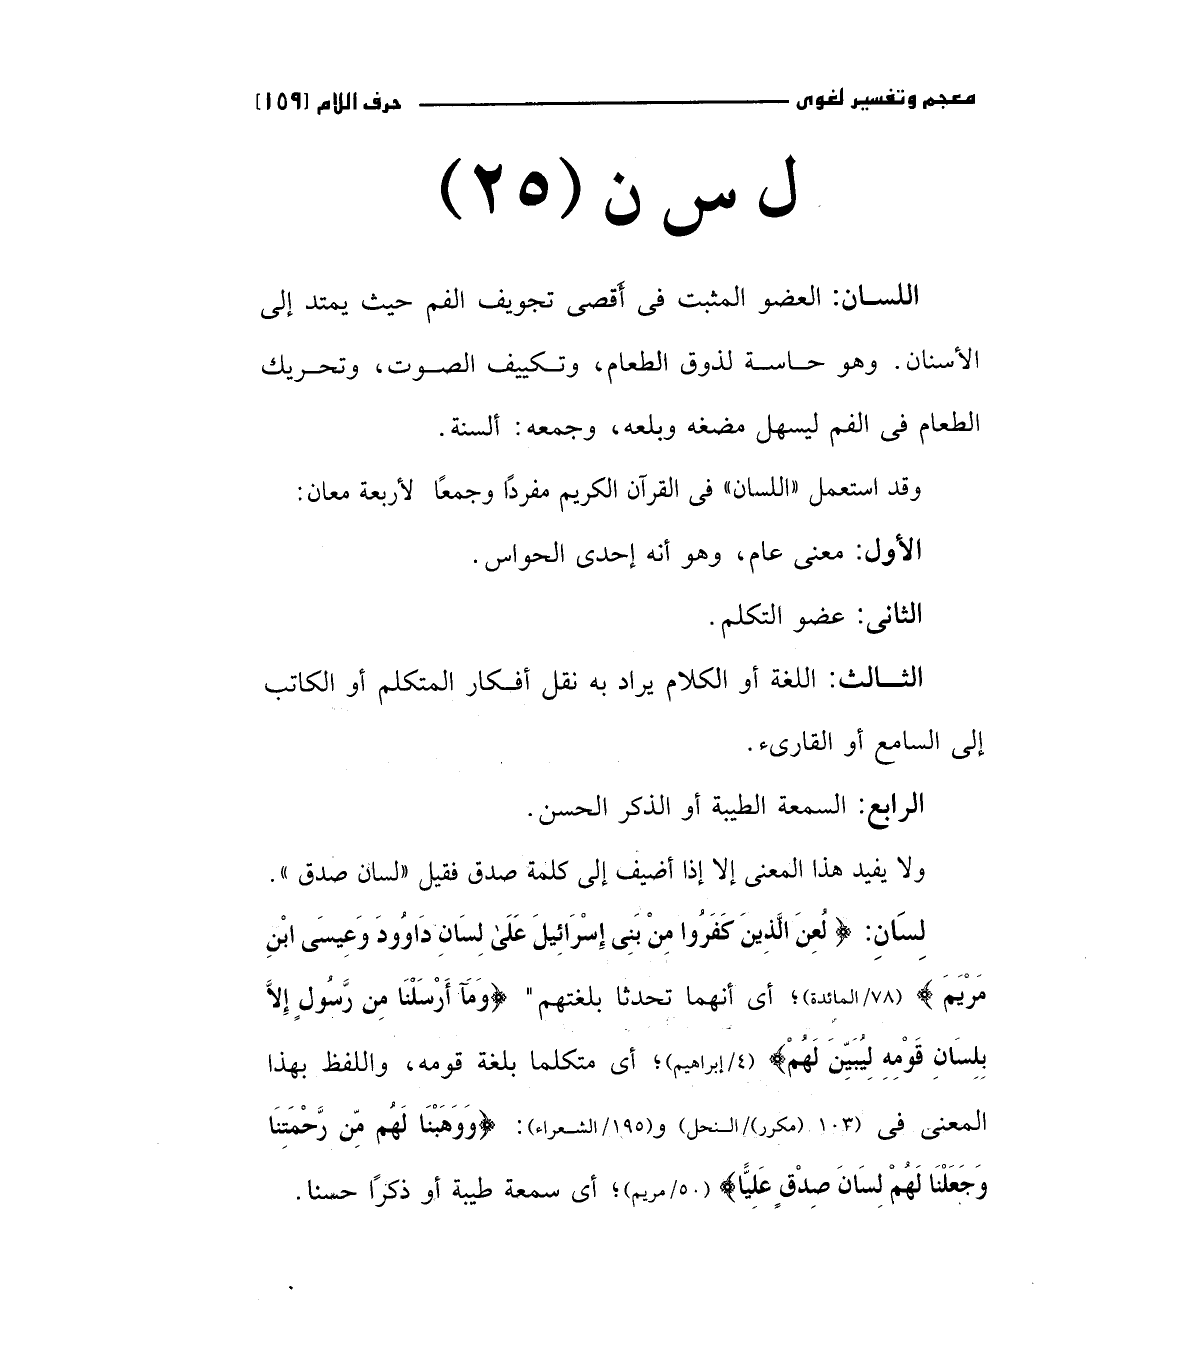 معجم وتفسير لغوى حرف اللام [١٥٩]
ل س ن (٢٥)
اللسان: العضو المثبت فى أَقصى تجويف الفم حيث يمتد إلى
الأسنان. وهو حاسة لذوق الطعام، وتكييف الصوت، وتحريك
الطعام فى الفم ليسهل مضغه وبلعه، وجمعه: ألسنة.
وقد استعمل «اللسان» فى القرآن الكريم مفردًا وجمعًا لأربعة معان:
الأول: معنى عام، وهو أنه إحدى الحواس.
الثانى: عضو التكلم.
الثالث: اللغة أو الكلام يراد به نقل أفكار المتكلم أو الكاتب
إلى السامع أو القارىء.
الرابع: السمعة الطيبة أو الذكر الحسن.
ولا يفيد هذا المعنى إلا إذا أضيف إلى كلمة صدق فقيل «لسان صدق ».
لِسَانِ: ﴿ لُعِنَ الَّذِينَ كَفَرُوا مِنْ بَنِى إِسْرَائِيلَ عَلَىٰ لِسَانِ دَاوُودَ وَعِيسَى ابْنِ
مَرْيَمَ ﴾ (٧٨/ المائدة)؛ أى أنهما تحدثا بلغتهم" ﴿وَمَآ أَرْسَلْنَا مِن رَّسُولٍ إِلاَّ
بِلِسَانِ قَوْمِهِ لِيُبَيِّنَ لَهُمْ﴾ (٤/ إبراهيم)؛ أى متكلما بلغة قومه، واللفظ بهذا
المعنى فى (١٠٣ (مكرر)/ النحل) و(١٩٥/ الشعراء): ﴿وَوَهَبْنَا لَهُم مِّن رَّحْمَتِنَا
وَجَعَلْنَا لَهُمْ لِسَانَ صِدْقٍ عَلِيًّا﴾ (٥٠/ مريم)؛ أى سمعة طيبة أو ذكرًا حسنا.